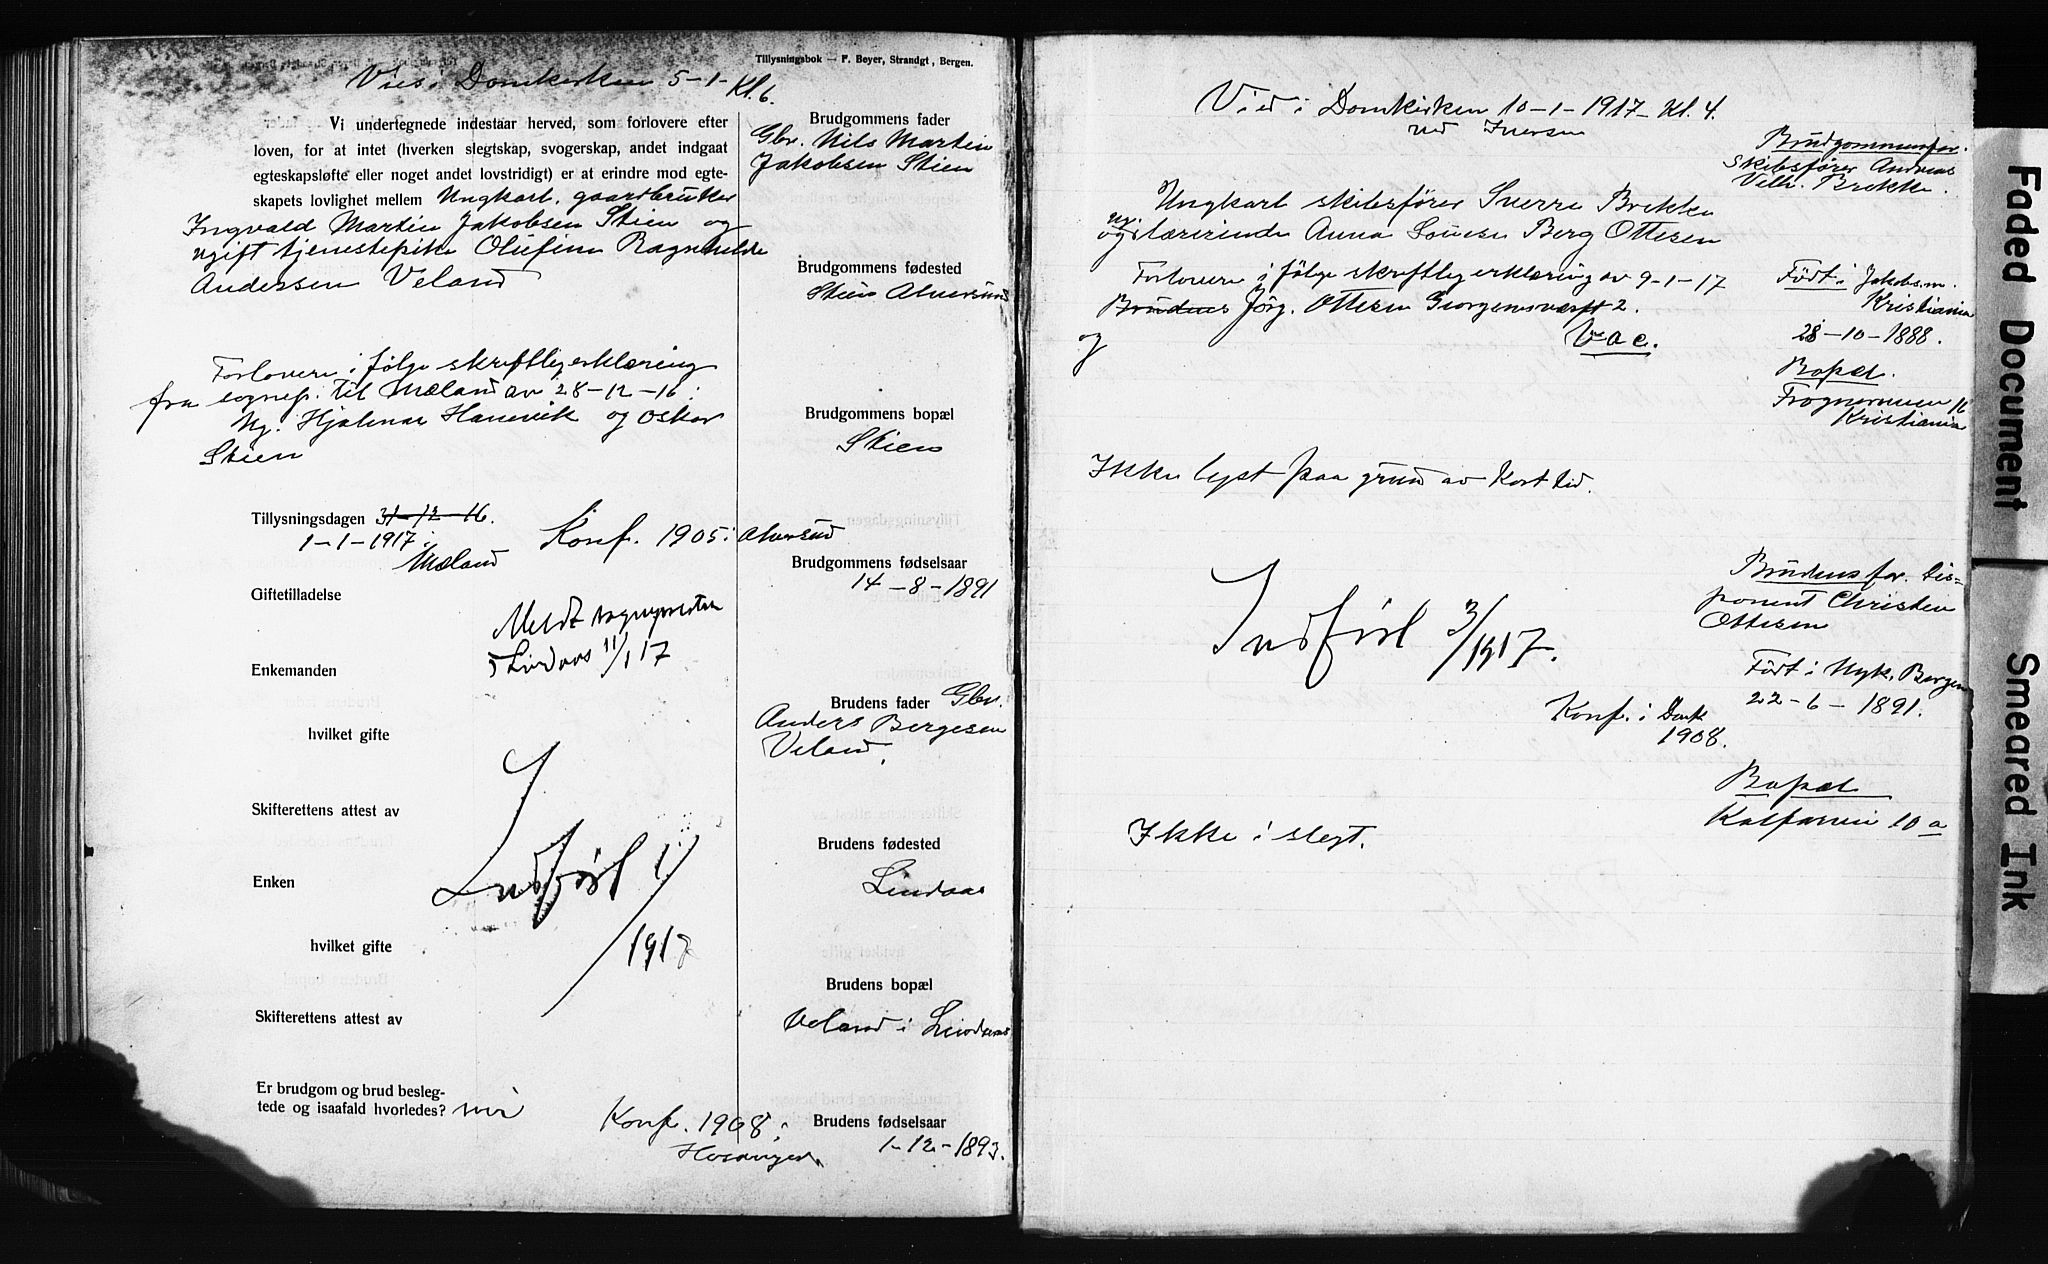 Tillysningsbok — F. Beyer, Strandgt, Bergen.
Vies i Domkirken 5-1- Kl. 6.
Vi undertegnede indestaar herved, som forlovere efter
loven, for at intet (hverken slegtskap, svogerskap, andet indgaat
egteskapsløfte eller noget andet lovstridigt) er at erindre mod egte-
skapets lovlighet mellem Ungkarl, gaardbruker
Ingvald Martin Jakobsen Stien og
ugift tjenestepike Olufine Ragnhilde
Andersen Veland
Forlovere i følge skriftlig erklæring
fra sognep. til Mæland av 28-12-16:
Ng. Hjalmar Hanevik og Oskar
Stien
Tillysningsdagen 31-12-16.
1-1-1917 i
Mæland
Konf. 1905 i Alversund
Giftetilladelse
Meldt sognepresten
i Lindaas 11/1 17
Enkemanden
hvilket gifte
Skifterettens attest av
Indført 1/
1917
Enken
hvilket gifte
Skifterettens attest av
Er brudgom og brud besleg-
tede og isaafald hvorledes? nei
Konf. 1908 i
Hosanger
Brudgommens fader
Gbr. Nils Martin
Jakobsen Stien
Brudgommens fødested
Stien Alversund
Brudgommens bopæl
Stien
Brudgommens fødselsaar
14-8-1891
Brudens fader Gbr.
Anders Bergesen
Veland.
Brudens fødested
Lindaas
Brudens bopæl
Veland i Lindaas
Brudens fødselsaar
1-12-1893.
Vied i Domkirken 10-1-1917 Kl. 4.
ved Iversen
Ungkarl skibsfører Sverre Brekke
og ug. lærerinde Anna Louise Berg Ottesen
Forlovere i følge skriftlig erklæring av 9-1-17
Brudens Jörg. Ottesen Georgernesverft 2.
og Vac.
Ikke lyst paa grund av Kort tid.
Indført 3/1917.
Konf. i Domk
1908.
Ikke i slegt.
Brudgommens far.
Skibsfører Andreas
Vilh. Brekke.
Født i Jakobs m.
Kristiania
28-10-1888.
Bopæl.
Frognerveien 16
Kristiania
Brudens far. Dis-
ponent Christen
Ottesen
Født i Nyk. Bergen
22-6-1891.
Bopæl
Kalfarvei 10 a
Faded Document
Smeared Ink